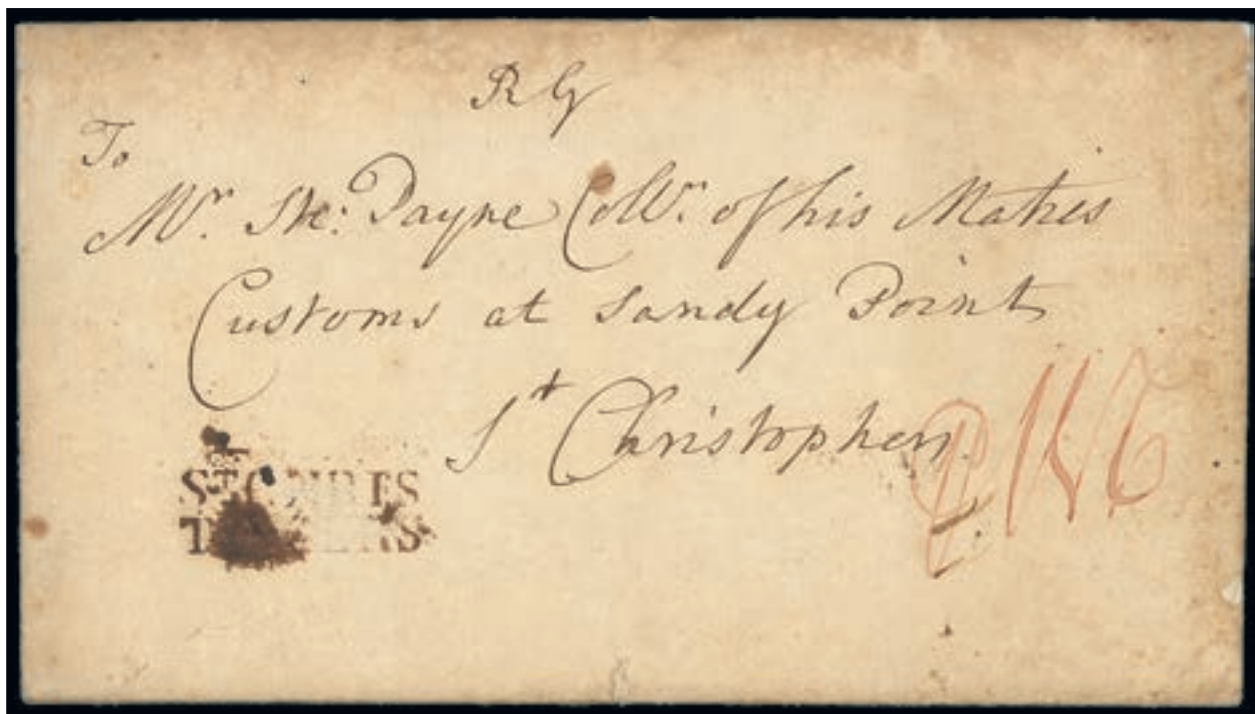 R G
To
Mr. Ste: Payne Collr. of his Maties
Customs at Sandy Point
St Christophers
ST CHRIS
T ERS